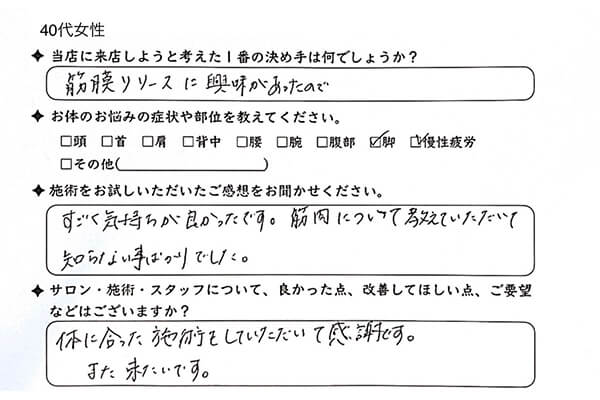 40代女性
✦ 当店に来店しようと考えた1番の決め手は何でしょうか?
筋膜リリースに興味があったので
✦ お体のお悩みの症状や部位を教えてください。
□頭 □首 □肩 □背中 □腰 □腕 □腹部 ☑脚 ☑慢性疲労
□その他( )
✦ 施術をお試しいただいたご感想をお聞かせください。
すごく気持ちが良かったです。筋肉について教えていただいて
知らない事ばかりでした。
✦ サロン・施術・スタッフについて、良かった点、改善してほしい点、ご要望
などはございますか?
体に合った施術をしていただいて感謝です。
また来たいです。